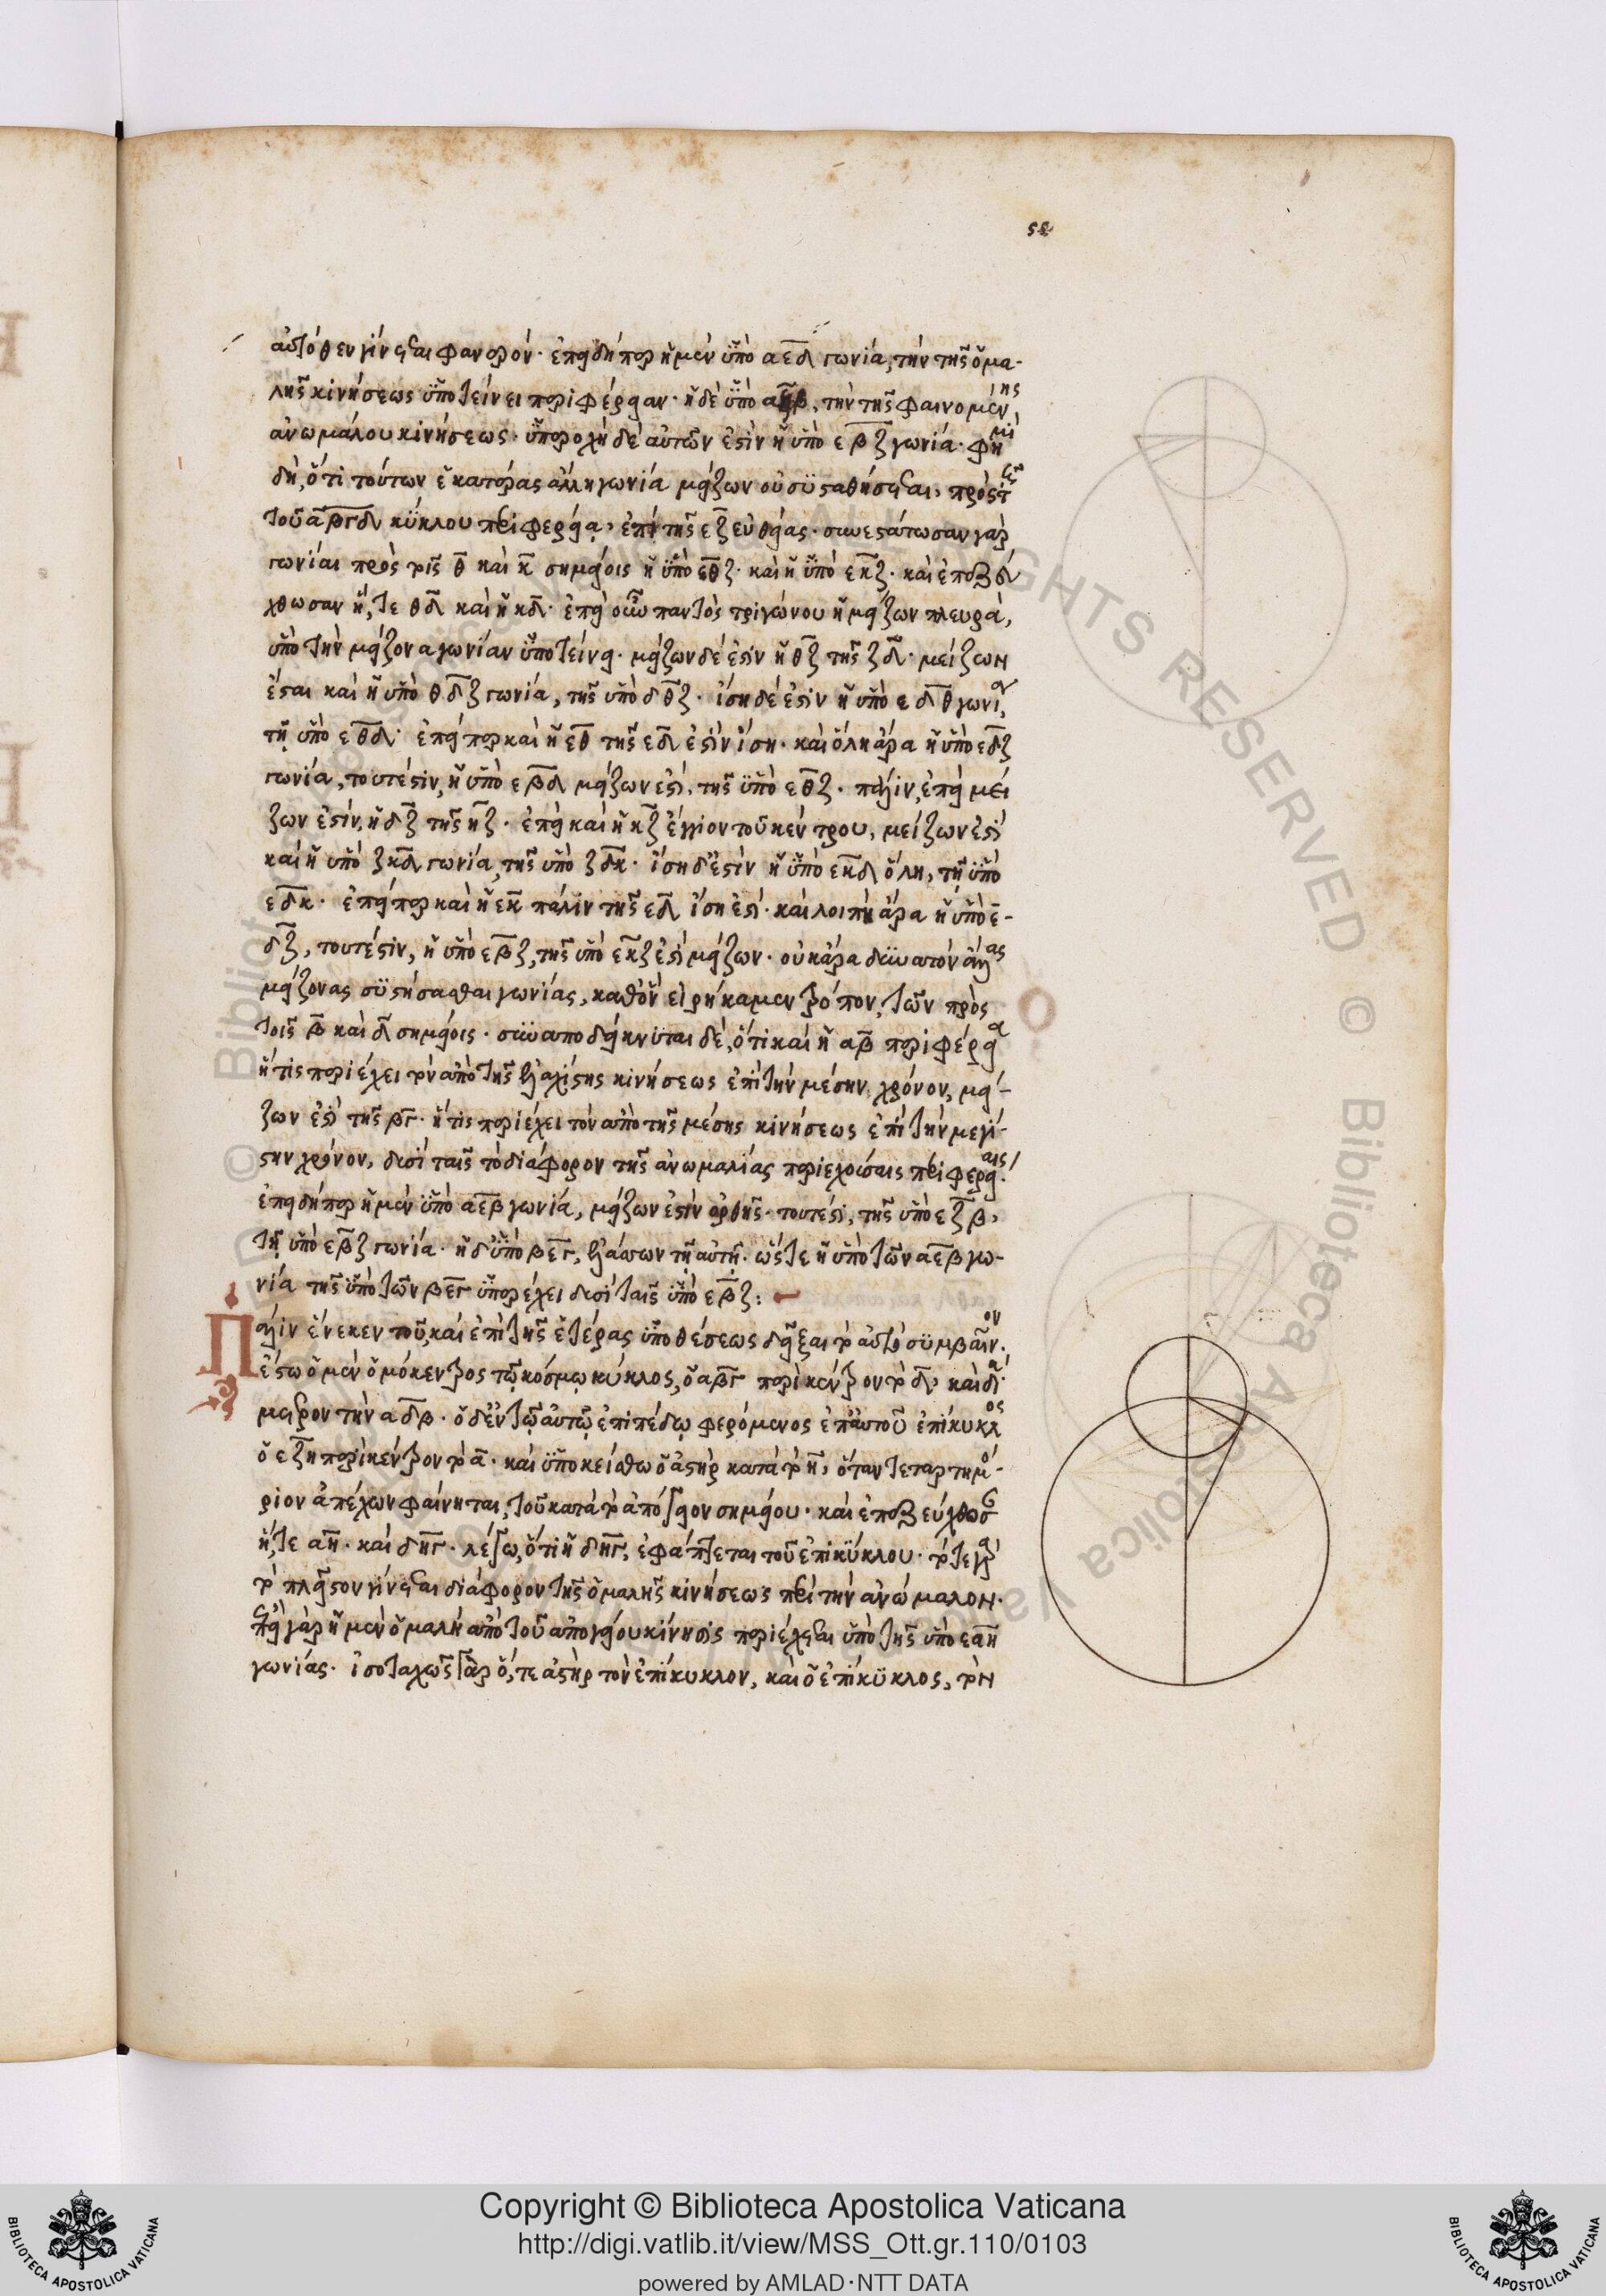 52
αὐτόθεν γίνεται φανερόν· ἐπειδήπερ ἡ μὲν ὑπὸ αεδ γωνία, τὴν τῆς ὁμα-
λῆς κινήσεως ὑποτείνει περιφέρειαν· ἡ δὲ ὑπὸ , τὴν τῆς φαινομένης
ἀνωμάλου κινήσεως· ὑπεροχὴ δὲ αὐτῶν ἐστὶν ἡ ὑπὸ εβζ γωνία· φημὶ
δὴ, ὅτι τούτων ἑκατέρας ἄλλη γωνία μείζων οὐ συσταθήσεται, πρὸς τῇ
τοῦ αβγδ κύκλου περιφερείᾳ, ἐπὶ τῆς εζ εὐθείας· συνεστάτωσαν γὰρ
γωνίαι πρὸς τοῖς θ καὶ κ σημείοις ἡ ὑπὸ εθζ· καὶ ἡ ὑπὸ εκζ· καὶ ἐπεζεύ
χθωσαν ἥ,τε θδ καὶ ἡ κδ· ἐπεὶ οὖν παντὸς τριγώνου ἡ μείζων πλευρά,
ὑπὸ τὴν μείζονα γωνίαν ὑποτείνει· μείζων δέ ἐστιν ἡ θζ τῆς ζδ· μείζων
ἔσται καὶ ἡ ὑπὸ θδζ γωνία, τῆς ὑπὸ δθζ· ἴση δέ ἐστιν ἡ ὑπὸ εδθ γωνία,
τῇ ὑπὸ εθδ· ἐπείπερ καὶ ἡ εθ τῆς εδ ἐστὶν ἴση· καὶ ὅλη ἄρα ἡ ὑπὸ εδζ
γωνία, τουτέστιν, ἡ ὑπὸ εβδ μείζων ἐστὶ, τῆς ὑπὸ εθζ· πάλιν, ἐπεὶ μεί
ζων ἐστίν, ἡ δζ τῆς κζ· ἐπεὶ καὶ ἡ κζ ἔγγιον τοῦ κέντρου, μείζων ἐστὶ
καὶ ἡ ὑπὸ ζκδ γωνία, τῆς ὑπὸ ζδκ· ἴση δ' ἐστὶν ἡ ὑπὸ εκδ ὅλη, τῇ ὑπὸ
εδκ· ἐπείπερ καὶ ἡ εκ πάλιν τῆς εδ ἴση ἐστί· καὶ λοιπὴ ἄρα ἡ ὑπὸ ε-
δζ, τουτέστιν, ἡ ὑπὸ εβζ, τῆς ὑπὸ εκζ ἐστὶ μείζων· οὐκ ἄρα δυνατὸν ἄλλας
μείζονας συστήσασθαι γωνίας, καθ' ὃν εἰρήκαμεν τρόπον, τῶν πρὸς
τοῖς β καὶ δ σημείοις· συναποδείκνυται δὲ, ὅτι καὶ ἡ αβ περιφέρεια
ἥτις περιέχει τὸν ἀπὸ τῆς ἐλαχίστης κινήσεως ἐπὶ τὴν μέσην, χρόνον, μεί-
ζων ἐστὶ τῆς βγ· ἥτις περιέχει τὸν ἀπὸ τῆς μέσης κινήσεως ἐπὶ τὴν μεγί-
στην χρόνον, δυσὶ ταῖς τὸ διάφορον τῆς ἀνωμαλίας περιεχούσαις περιφερείαις·
ἐπειδήπερ ἡ μὲν ὑπὸ αεβ γωνία, μείζων ἐστὶν ὀρθῆς· τουτέστι, τῆς ὑπὸ εζβ,
τῇ ὑπὸ εβζ γωνίᾳ· ἡ δ' ὑπὸ βεγ, ἐλάσσων τῇ αὐτῇ· ὥστε ἡ ὑπὸ τῶν αεβ γω-
νία τῆς ὑπὸ τῶν βεγ ὑπερέχει δυσὶ ταῖς ὑπὸ εβζ:
Πάλιν ἕνεκεν τοῦ, καὶ ἐπὶ τῆς ἑτέρας ὑποθέσεως δεῖξαι τὸ αὐτὸ συμβαῖνον·
ἔστω ὁ μὲν ὁμόκεντρος τῷ κόσμῳ κύκλος, ὁ αβγ περὶ κέντρον τὸ δ, καὶ διά
μετρον τὴν αδβ· ὁ δ' ἐν τῷ αὐτῷ ἐπιπέδῳ φερόμενος ἐπ' αὐτοῦ ἐπίκυκλος
ὁ εζη περὶ κέντρον τὸ α· καὶ ὑποκείσθω ὁ ἀστὴρ κατὰ τὸ η, ὅταν τεταρτημό-
ριον ἀπέχων φαίνηται, τοῦ κατὰ τὸ ἀπόγειον σημείου· καὶ ἐπεζεύχθωσαν
ἥ,τε αη· καὶ δηγ· λέγω, ὅτι ἡ δηγ, ἐφάπτεται τοῦ ἐπικύκλου· τότε γὰρ
τὸ πλεῖστον γίνεται διάφορον τῆς ὁμαλῆς κινήσεως περὶ τὴν ἀνώμαλον·
ἐπεὶ γὰρ ἡ μὲν ὁμαλὴ ἀπὸ τοῦ ἀπογείου κίνησις περιέχεται ὑπὸ τῆς ὑπὸ εαη
γωνίας· ἰσοταχῶς γὰρ ὅ,τε ἀστὴρ τὸν ἐπίκυκλον, καὶ ὁ ἐπίκυκλος, τὸν
© Biblioteca Apostolica Vaticana
ALL RIGHTS RESERVED
Copyright © Biblioteca Apostolica Vaticana
http://digi.vatlib.it/view/MSS_Ott.gr.110/0103
powered by AMLAD·NTT DATA
BIBLIOTECA APOSTOLICA VATICANA
BIBLIOTECA APOSTOLICA VATICANA